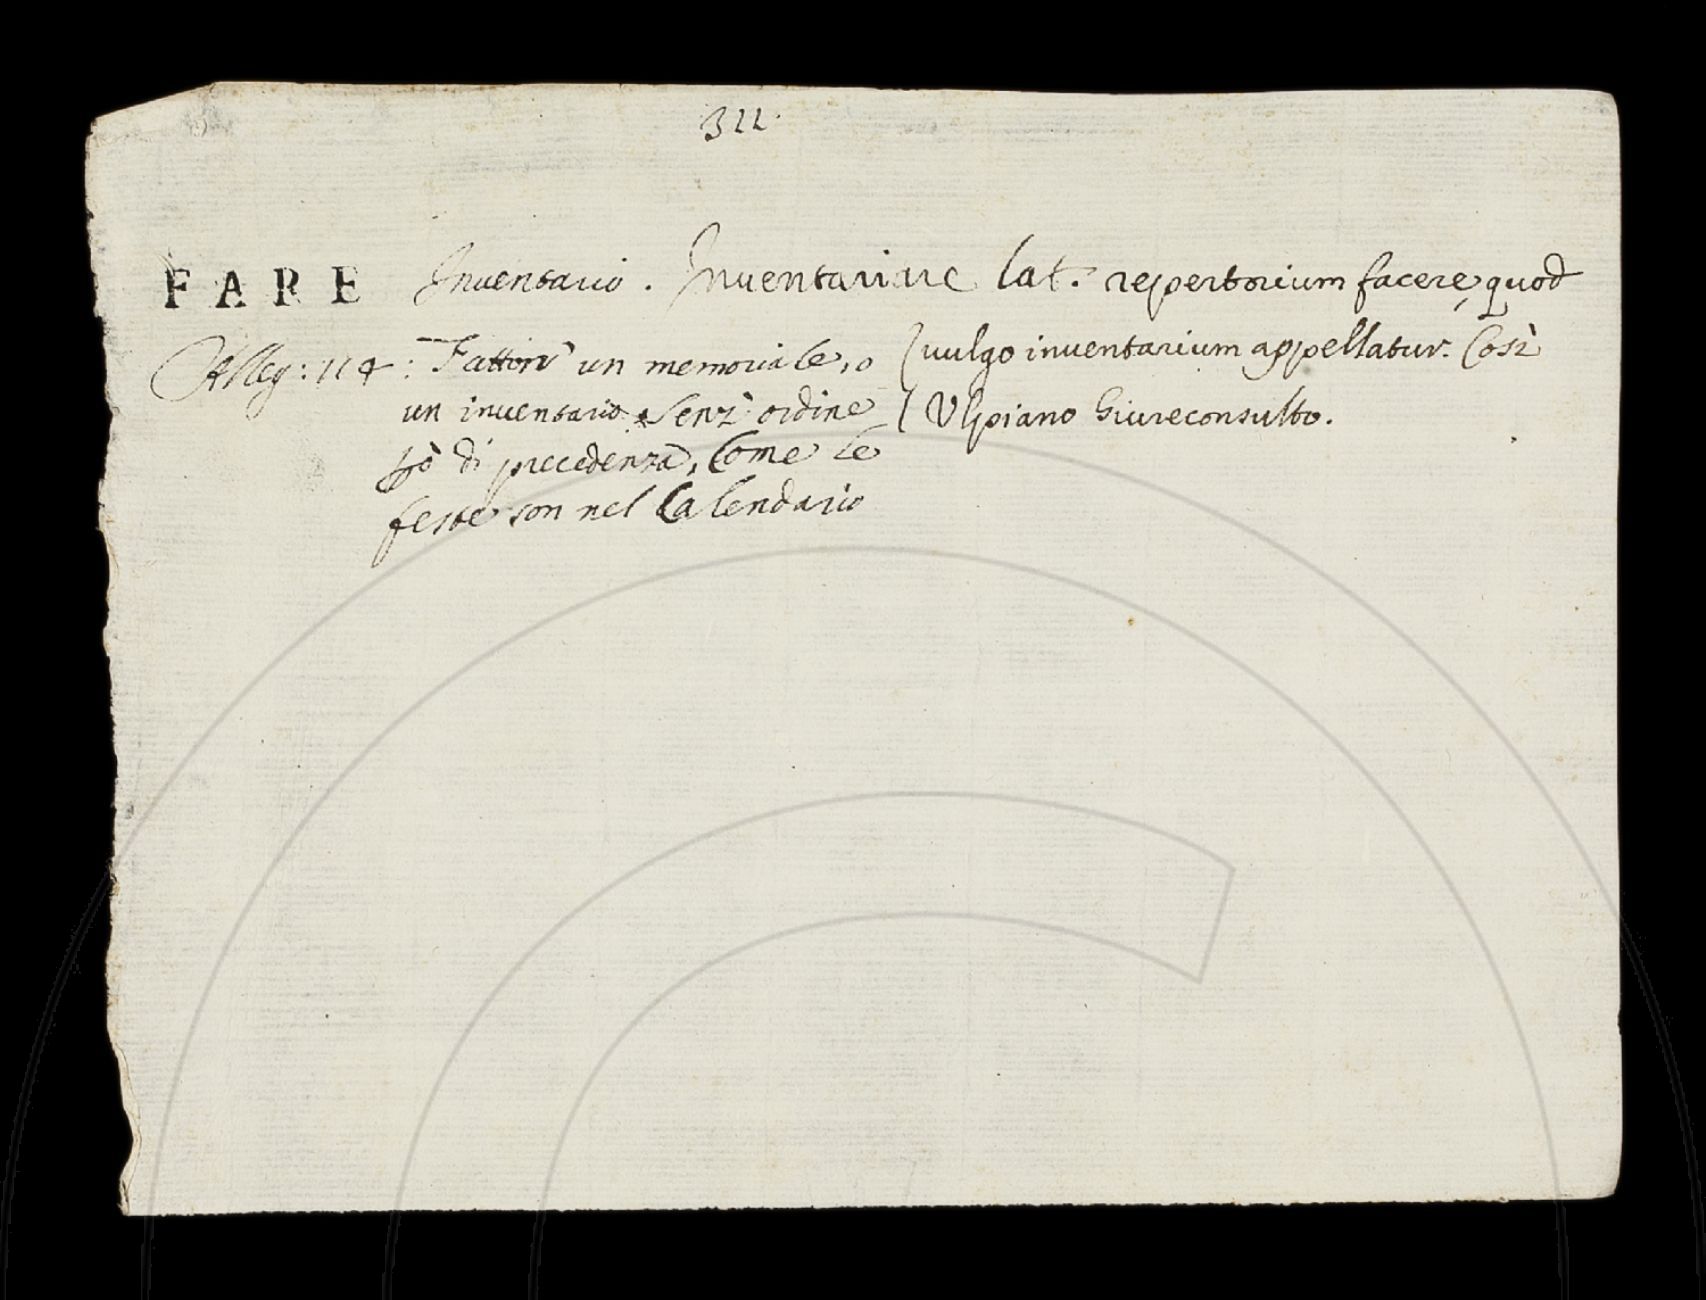 322.
FARE Inventario. Inventariare lat. repertorium facere, quod
vulgo inventarium appellatur. Così
Ulpiano Giureconsulto.
Alleg: 114: un memoriale, o
un inventario Senz' ordine
di precedenza, Come le
feste son nel Calendario